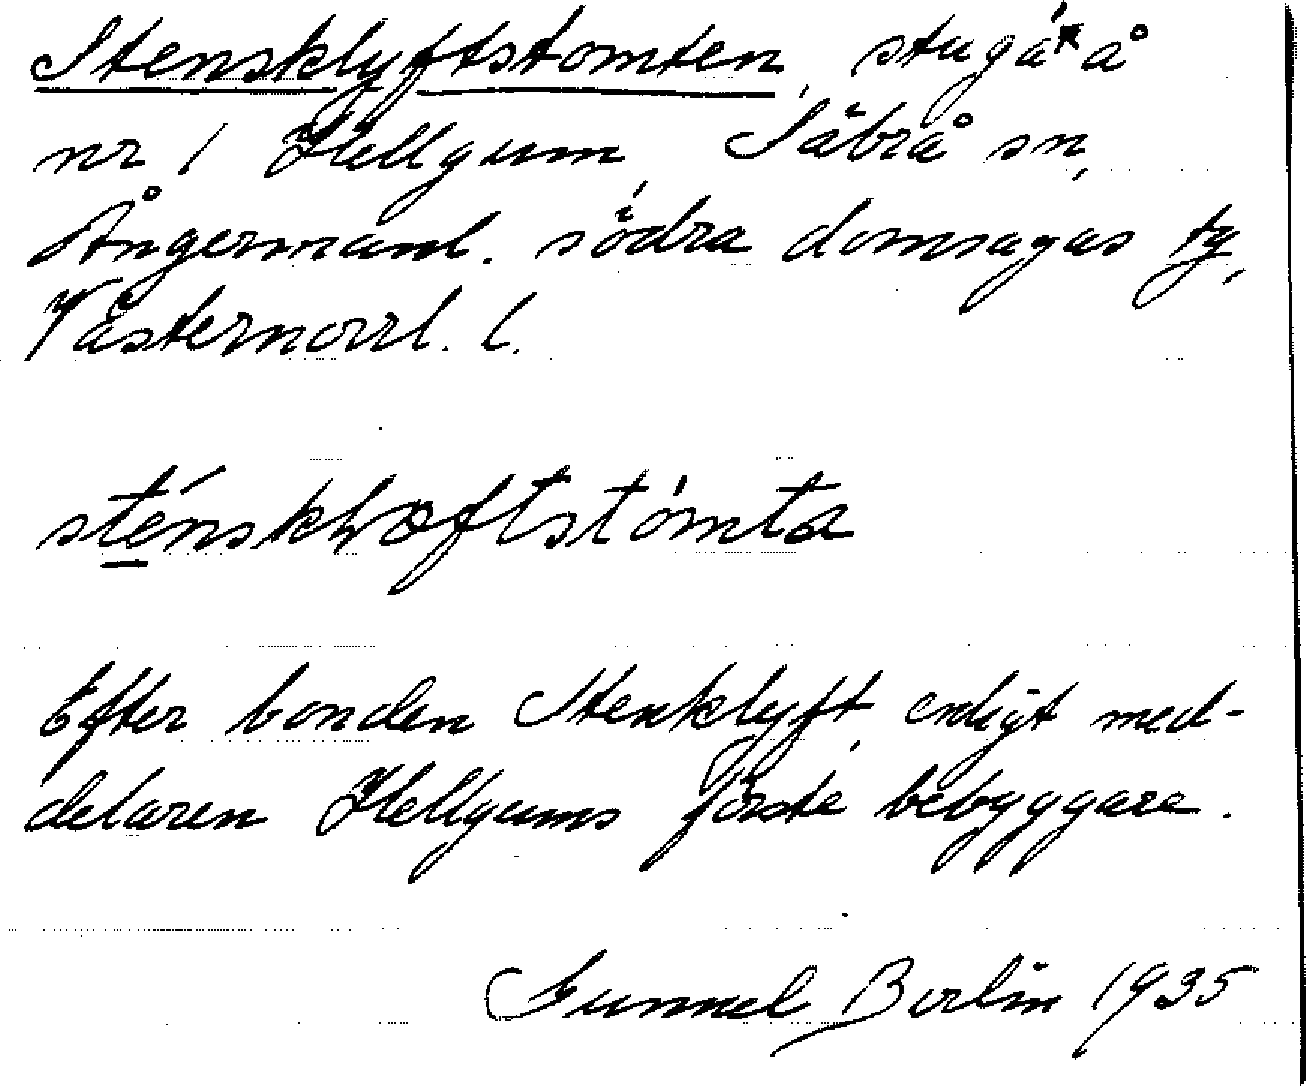 Stensklyftstomten, stuga* å
nr 1 Hellgum, Säbrå sn,
Ångermanl. södra domsagas tg,
Västernorrl. l.
sténskləftstómta
Efter bonden Stenklyft, enligt med-
delaren Hellgums förste bebyggare.
Gunnel Berlin 1935